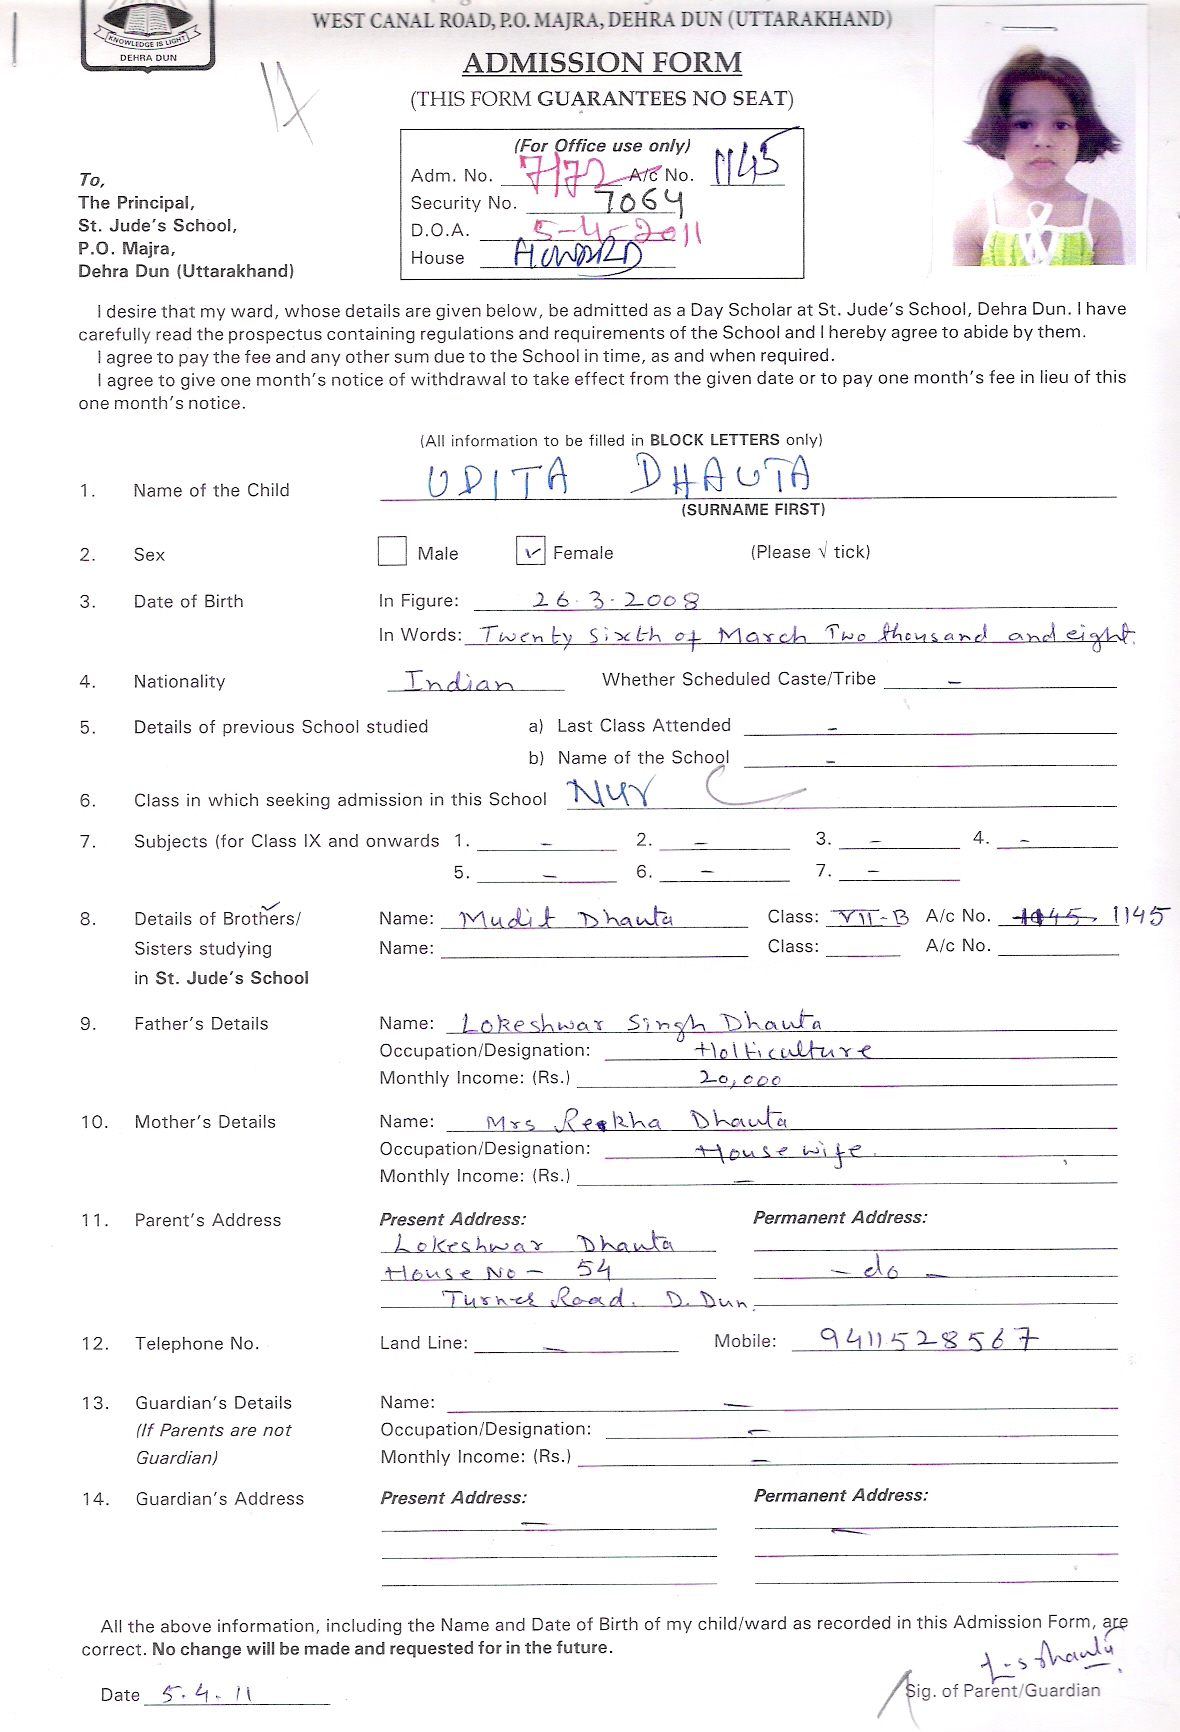 KNOWLEDGE IS LIGHT
DEHRA DUN
WEST CANAL ROAD, P.O. MAJRA, DEHRA DUN (UTTARAKHAND)
ADMISSION FORM
(THIS FORM GUARANTEES NO SEAT)
(For Office use only)
Adm. No. 7172 A/c No. 1145
Security No. 7064
D.O.A. 5-4-2011
House HOWARD
To,
The Principal,
St. Jude's School,
P.O. Majra,
Dehra Dun (Uttarakhand)
I desire that my ward, whose details are given below, be admitted as a Day Scholar at St. Jude's School, Dehra Dun. I have
carefully read the prospectus containing regulations and requirements of the School and I hereby agree to abide by them.
I agree to pay the fee and any other sum due to the School in time, as and when required.
I agree to give one month's notice of withdrawal to take effect from the given date or to pay one month's fee in lieu of this
one month's notice.
(All information to be filled in BLOCK LETTERS only)
1. Name of the Child UDITA DHAUTA
(SURNAME FIRST)
2. Sex Male ✓ Female (Please √ tick)
3. Date of Birth In Figure: 26.3.2008
In Words: Twenty Sixth of March Two thousand and eight.
4. Nationality Indian Whether Scheduled Caste/Tribe –
5. Details of previous School studied a) Last Class Attended –
b) Name of the School –
6. Class in which seeking admission in this School Nur C
7. Subjects (for Class IX and onwards 1. – 2. – 3. – 4. –
5. – 6. – 7. –
8. Details of Brothers/ Name: Mudit Dhauta Class: VII-B A/c No. 1145
Sisters studying Name: Class: A/c No.
in St. Jude's School
9. Father's Details Name: Lokeshwar Singh Dhauta
Occupation/Designation: Holticulture
Monthly Income: (Rs.) 20,000
10. Mother's Details Name: Mrs Rekha Dhauta
Occupation/Designation: House wife.
Monthly Income: (Rs.) –
11. Parent's Address Present Address: Permanent Address:
Lokeshwar Dhauta
House No – 54 – do –
Turner Road. D. Dun.
12. Telephone No. Land Line: – Mobile: 9411528567
13. Guardian's Details Name: –
(If Parents are not Occupation/Designation: –
Guardian) Monthly Income: (Rs.) –
14. Guardian's Address Present Address: Permanent Address:
– –
All the above information, including the Name and Date of Birth of my child/ward as recorded in this Admission Form, are
correct. No change will be made and requested for in the future.
L-s Dhauta
Date 5.4.11 Sig. of Parent/Guardian